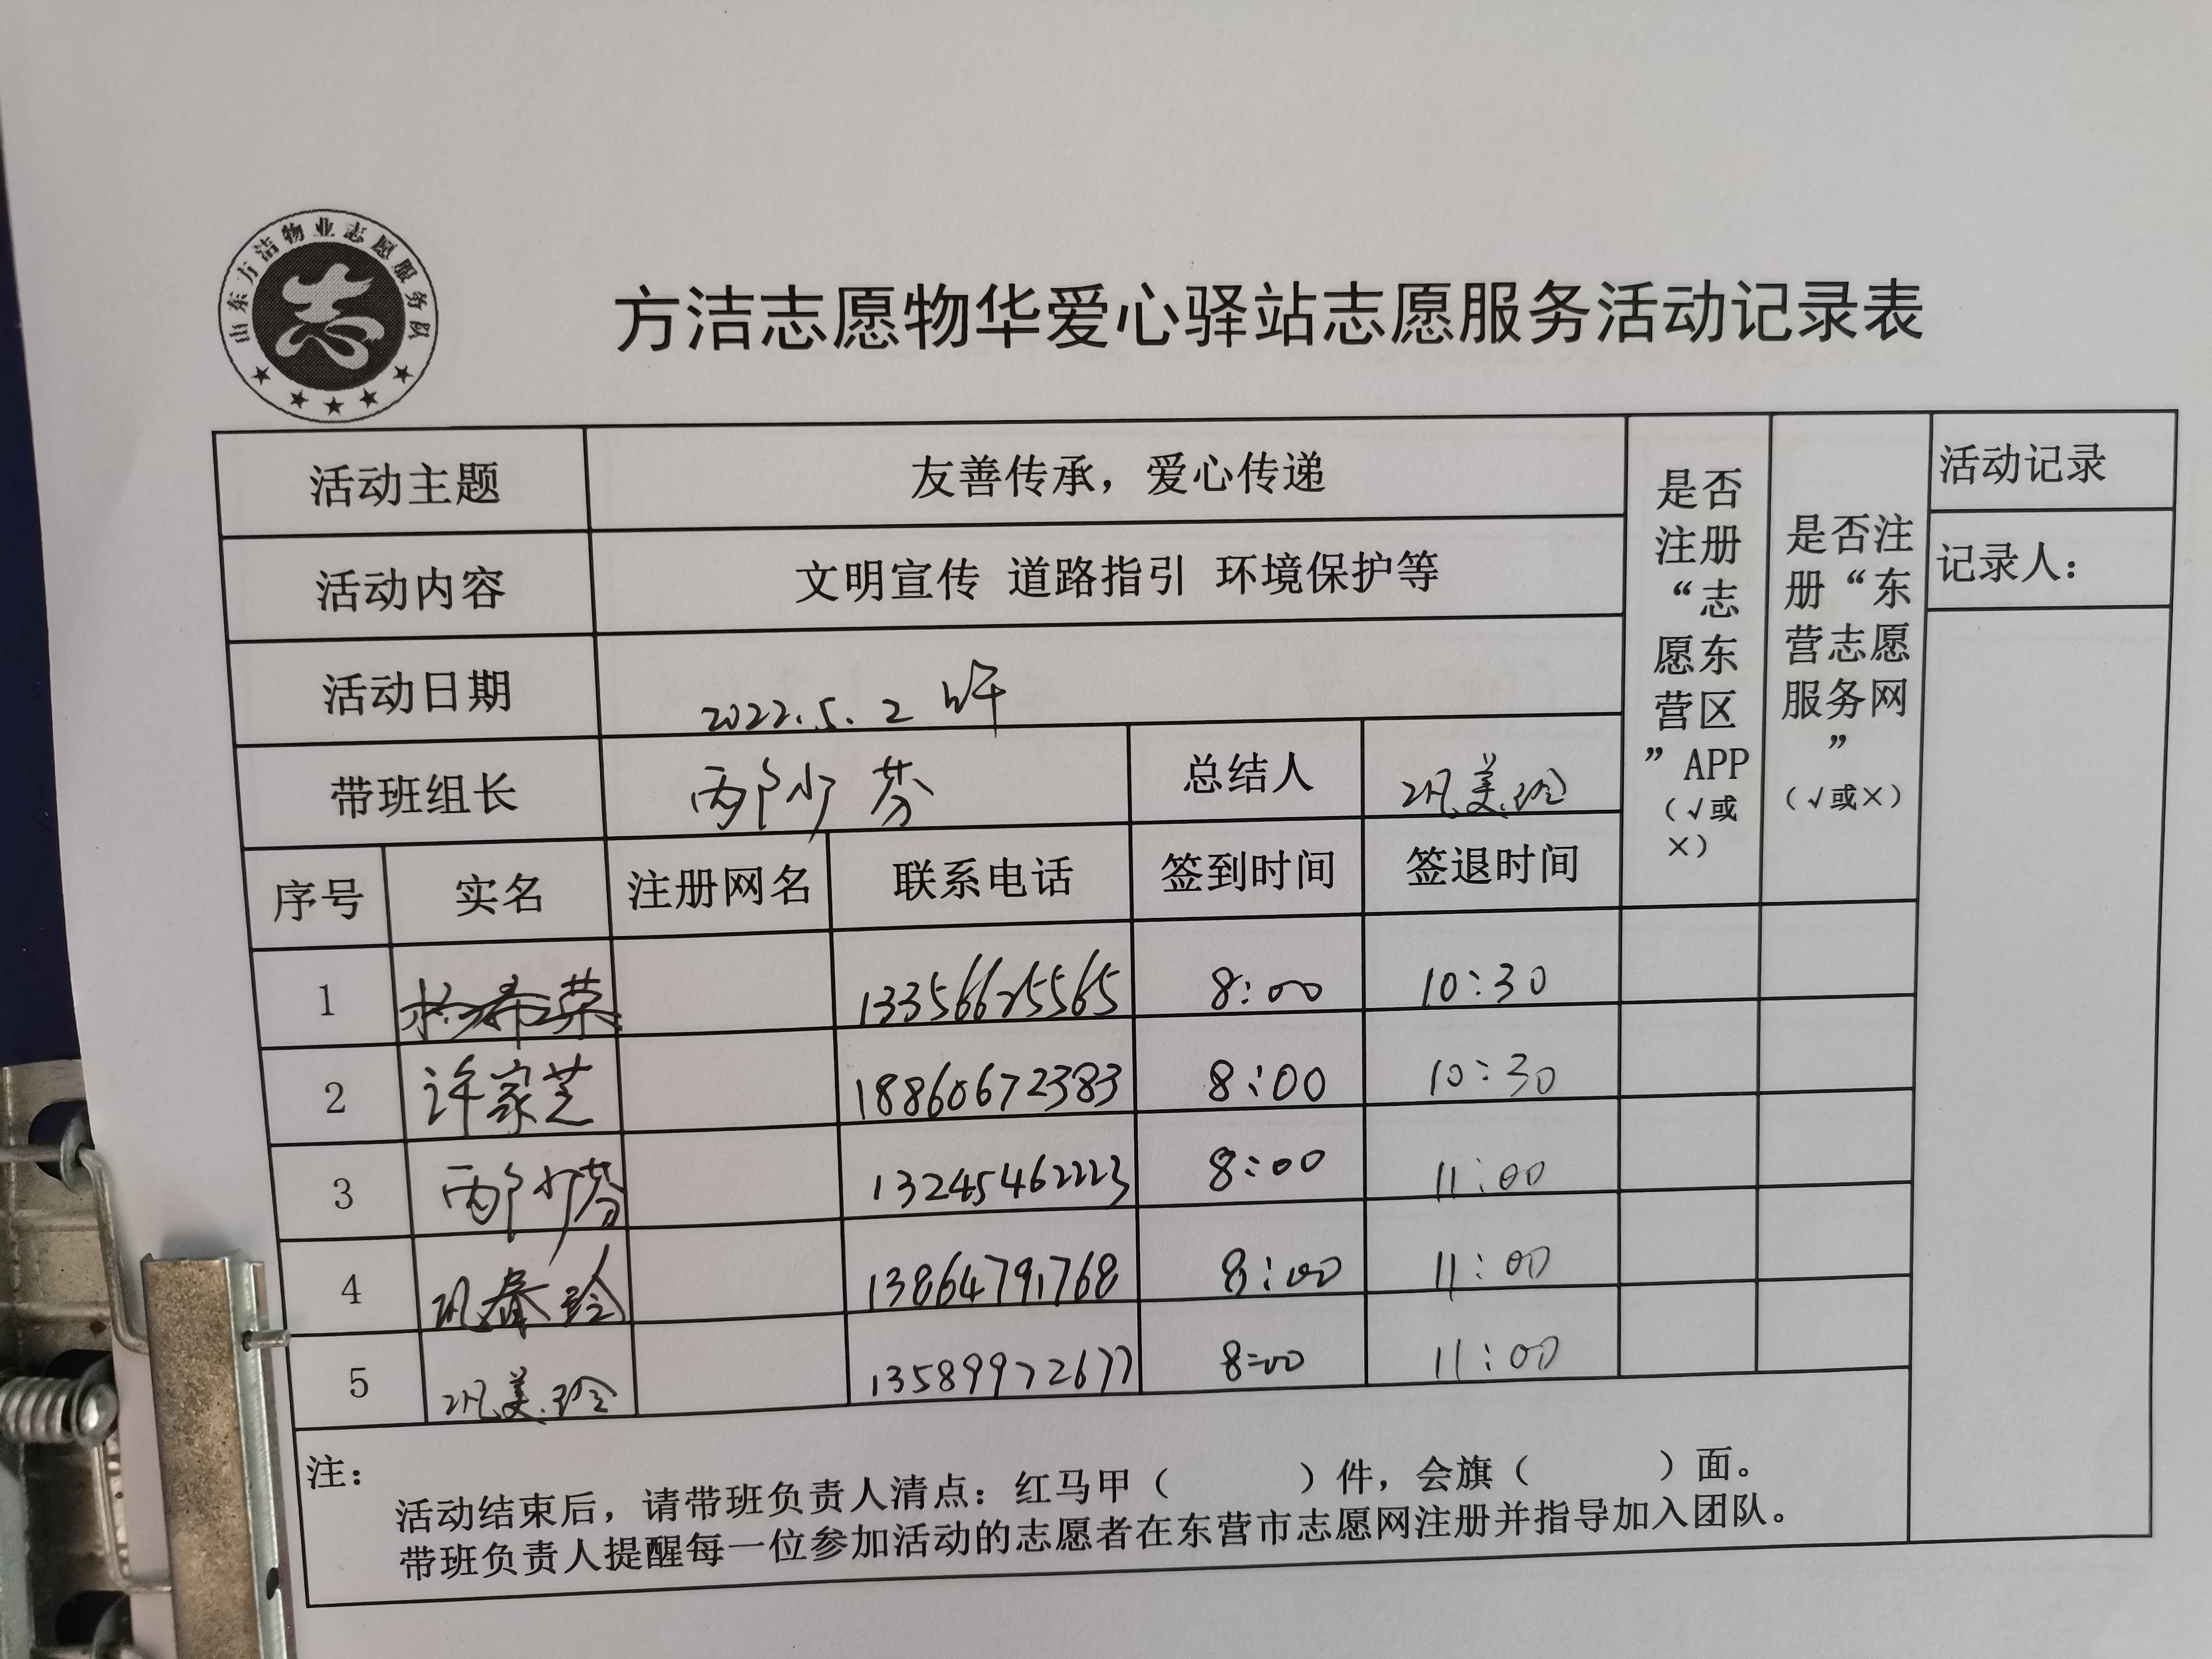 山东方洁物业志愿服务队
志
方洁志愿物华爱心驿站志愿服务活动记录表
活动主题 友善传承，爱心传递
是否注册“志愿东营区”APP（√或×）
是否注册“东营志愿服务网”（√或×）
活动记录
记录人：
活动内容 文明宣传 道路指引 环境保护等
活动日期 2022.5.2
带班组长 邴少芬 总结人 巩美玲
序号 实名 注册网名 联系电话 签到时间 签退时间
1 13356625565 8:00 10:30
2 许家芝 18860672383 8:00 10:30
3 邴少芬 13245462223 8:00 11:00
4 巩春玲 13864791768 8:00 11:00
5 巩美玲 13589972677 8:00 11:00
注：
活动结束后，请带班负责人清点：红马甲（ ）件，会旗（ ）面。
带班负责人提醒每一位参加活动的志愿者在东营市志愿网注册并指导加入团队。